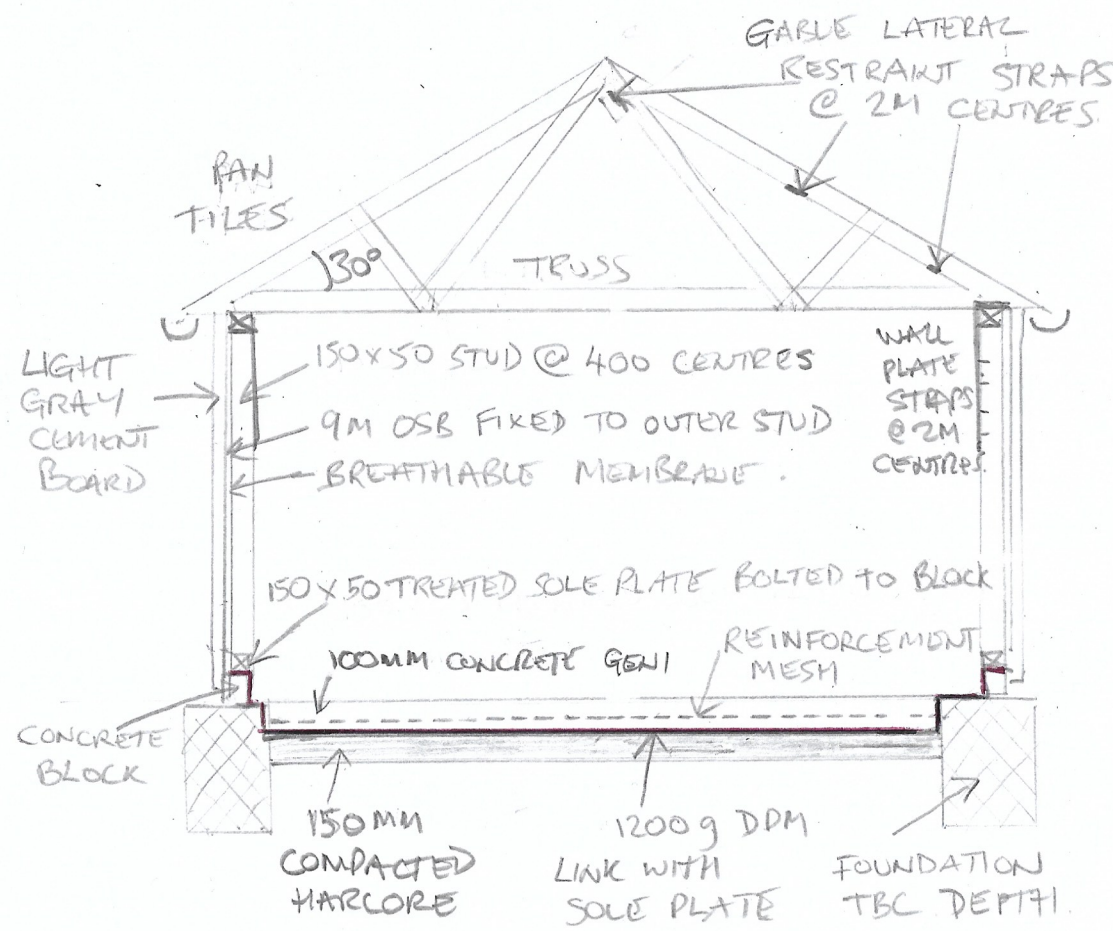 GABLE LATERAL
RESTRAINT STRAPS
@ 2M CENTRES
PAN
TILES
30°
TRUSS
LIGHT
GRAY
CEMENT
BOARD
150x50 STUD @ 400 CENTRES
9M OSB FIXED TO OUTER STUD
BREATHABLE MEMBRANE.
WALL
PLATE
STRAPS
@ 2M
CENTRES.
150x50 TREATED SOLE PLATE BOLTED to BLOCK
100MM CONCRETE GEN1
REINFORCEMENT
MESH
CONCRETE
BLOCK
150MM
COMPACTED
HARCORE
1200g DPM
LINK WITH
SOLE PLATE
FOUNDATION
TBC DEPTH.